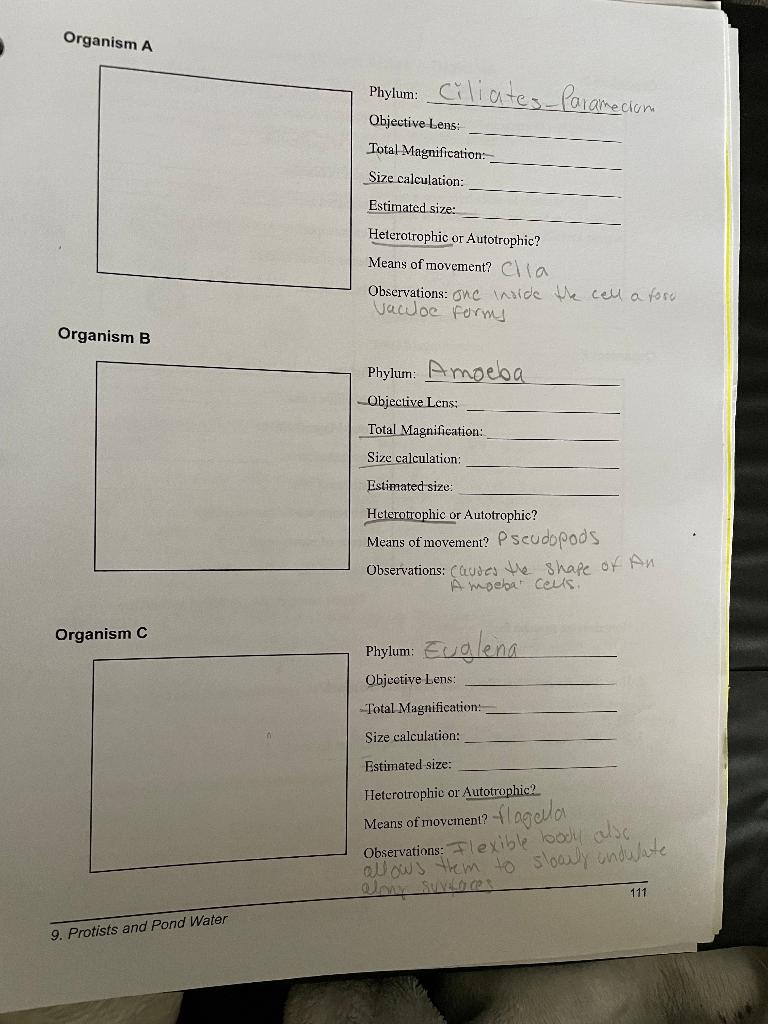 Organism A
Phylum: Ciliates-Paramecium
Objective Lens:
Total Magnification:
Size calculation:
Estimated size:
Heterotrophic or Autotrophic?
Means of movement? Cila
Observations: one inside the cell a food
vacuole forms
Organism B
Phylum: Amoeba
Objective Lens:
Total Magnification:
Size calculation:
Estimated size:
Heterotrophic or Autotrophic?
Means of movement? Pseudopods
Observations: causes the shape of An
Amoeba cells.
Organism C
Phylum: Euglena
Objective Lens:
Total Magnification:
Size calculation:
Estimated size:
Heterotrophic or Autotrophic?
Means of movement? flagella
Observations: Flexible body also
allows them to slowly undulate
along surfaces
111
9. Protists and Pond Water